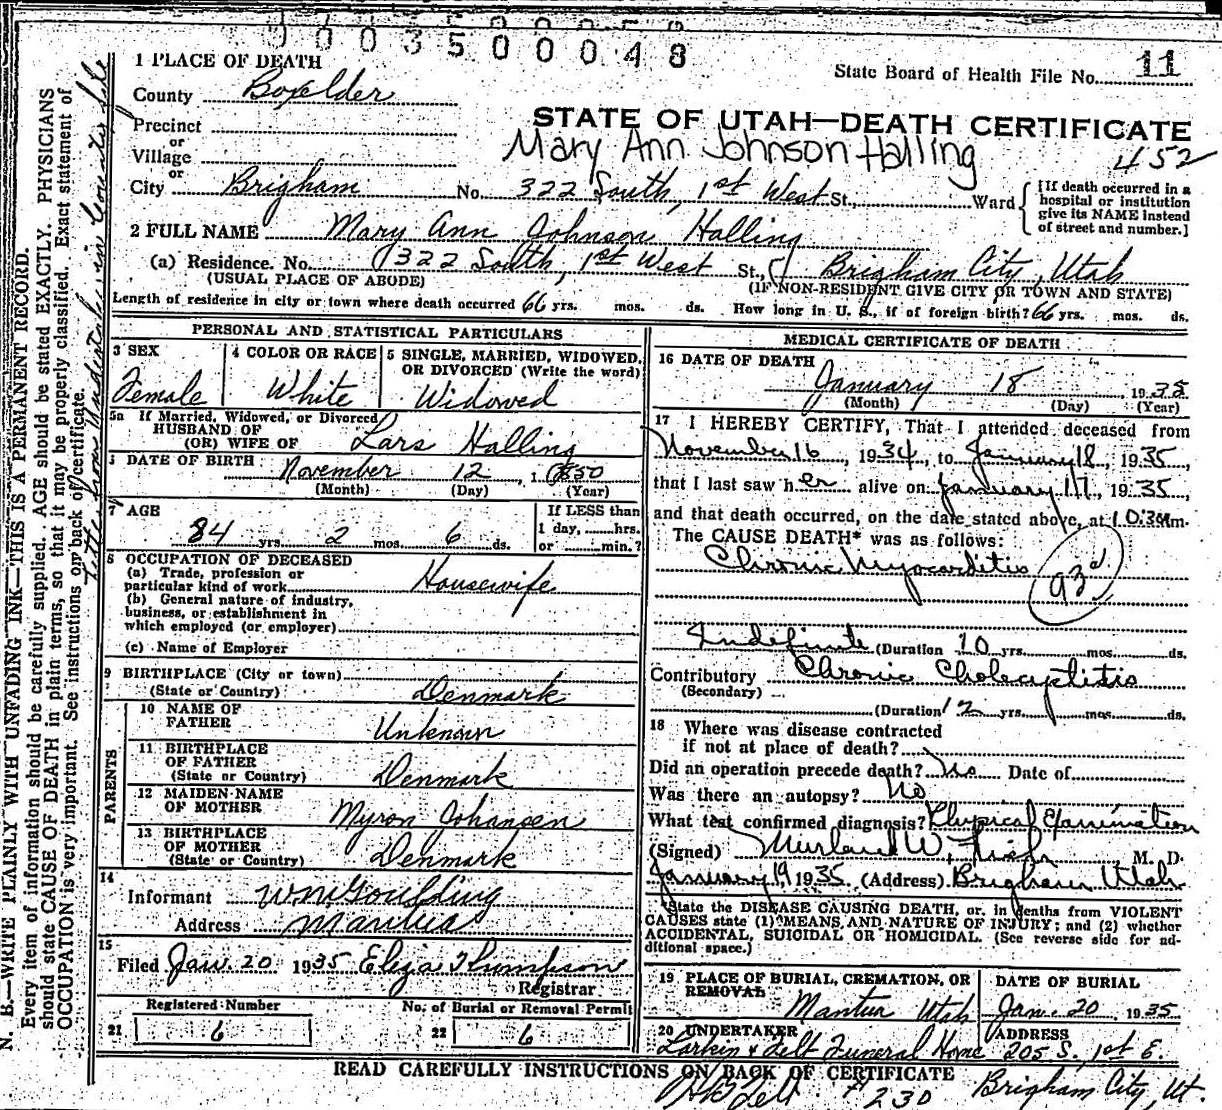 00035000048
11
State Board of Health File No.
1 PLACE OF DEATH
County Boxelder
Precinct
or
Village
or
City Brigham No. 322 South, 1st West St., Ward
[If death occurred in a
hospital or institution
give its NAME instead
of street and number.]
STATE OF UTAH—DEATH CERTIFICATE
Mary Ann Johnson Halling
452
2 FULL NAME Mary Ann Johnson Halling
(a) Residence. No. 322 South, 1st West St., Brigham City, Utah
(USUAL PLACE OF ABODE) (IF NON-RESIDENT GIVE CITY OR TOWN AND STATE)
Length of residence in city or town where death occurred 66 yrs. mos. ds. How long in U. S., if of foreign birth? 66 yrs. mos. ds.
PERSONAL AND STATISTICAL PARTICULARS
3 SEX
Female
4 COLOR OR RACE
White
5 SINGLE, MARRIED, WIDOWED,
OR DIVORCED (Write the word)
Widowed
5a If Married, Widowed, or Divorced
HUSBAND OF
(OR) WIFE OF Lars Halling
DATE OF BIRTH
November 12, 1850
(Month) (Day) (Year)
7 AGE
84 yrs. 2 mos. 6 ds.
If LESS than
1 day, hrs.
or min.?
8 OCCUPATION OF DECEASED
(a) Trade, profession or
particular kind of work Housewife
(b) General nature of industry,
business, or establishment in
which employed (or employer)
(c) Name of Employer
9 BIRTHPLACE (City or town)
(State or Country) Denmark
PARENTS
10 NAME OF
FATHER Unknown
11 BIRTHPLACE
OF FATHER
(State or Country) Denmark
12 MAIDEN NAME
OF MOTHER Myron Johansen
13 BIRTHPLACE
OF MOTHER
(State or Country) Denmark
14
Informant Wm Goulding
Address Mantua
15
Filed Jan. 20 1935 Eliza Thompson
Registrar
Registered Number
21 6
No. of Burial or Removal Permit
22 6
MEDICAL CERTIFICATE OF DEATH
16 DATE OF DEATH
January 18 1935
(Month) (Day) (Year)
17 I HEREBY CERTIFY, That I attended deceased from
November 16, 1934, to January 18, 1935,
that I last saw her alive on January 17, 1935,
and that death occurred, on the date stated above, at
The CAUSE DEATH* was as follows:
Chronic Myocarditis
93d
Indefinite (Duration 10 yrs. mos. ds.
Contributory
(Secondary)
Chronic
(Duration 12 yrs. mos. ds.
18 Where was disease contracted
if not at place of death?
Did an operation precede death? No Date of
Was there an autopsy? No
What test confirmed diagnosis? Physical Examination
(Signed) M. D.
January 19, 1935 (Address) Brigham Utah
*State the DISEASE CAUSING DEATH, or, in deaths from VIOLENT
CAUSES state (1) MEANS AND NATURE OF INJURY; and (2) whether
ACCIDENTAL, SUICIDAL OR HOMICIDAL. (See reverse side for ad-
ditional space.)
19 PLACE OF BURIAL, CREMATION, OR
REMOVAL
Mantua Utah
DATE OF BURIAL
Jan. 20 1935
20 UNDERTAKER
Larkin & Felt Funeral Home
ADDRESS
205 S. 1st E.
READ CAREFULLY INSTRUCTIONS ON BACK OF CERTIFICATE
Felt #230 Brigham City, Ut.
N. B.—WRITE PLAINLY WITH UNFADING INK—THIS IS A PERMANENT RECORD.
Every item of information should be carefully supplied. AGE should be stated EXACTLY. PHYSICIANS
should state CAUSE OF DEATH in plain terms, so that it may be properly classified. Exact statement of
OCCUPATION is very important. See instructions on back of certificate.